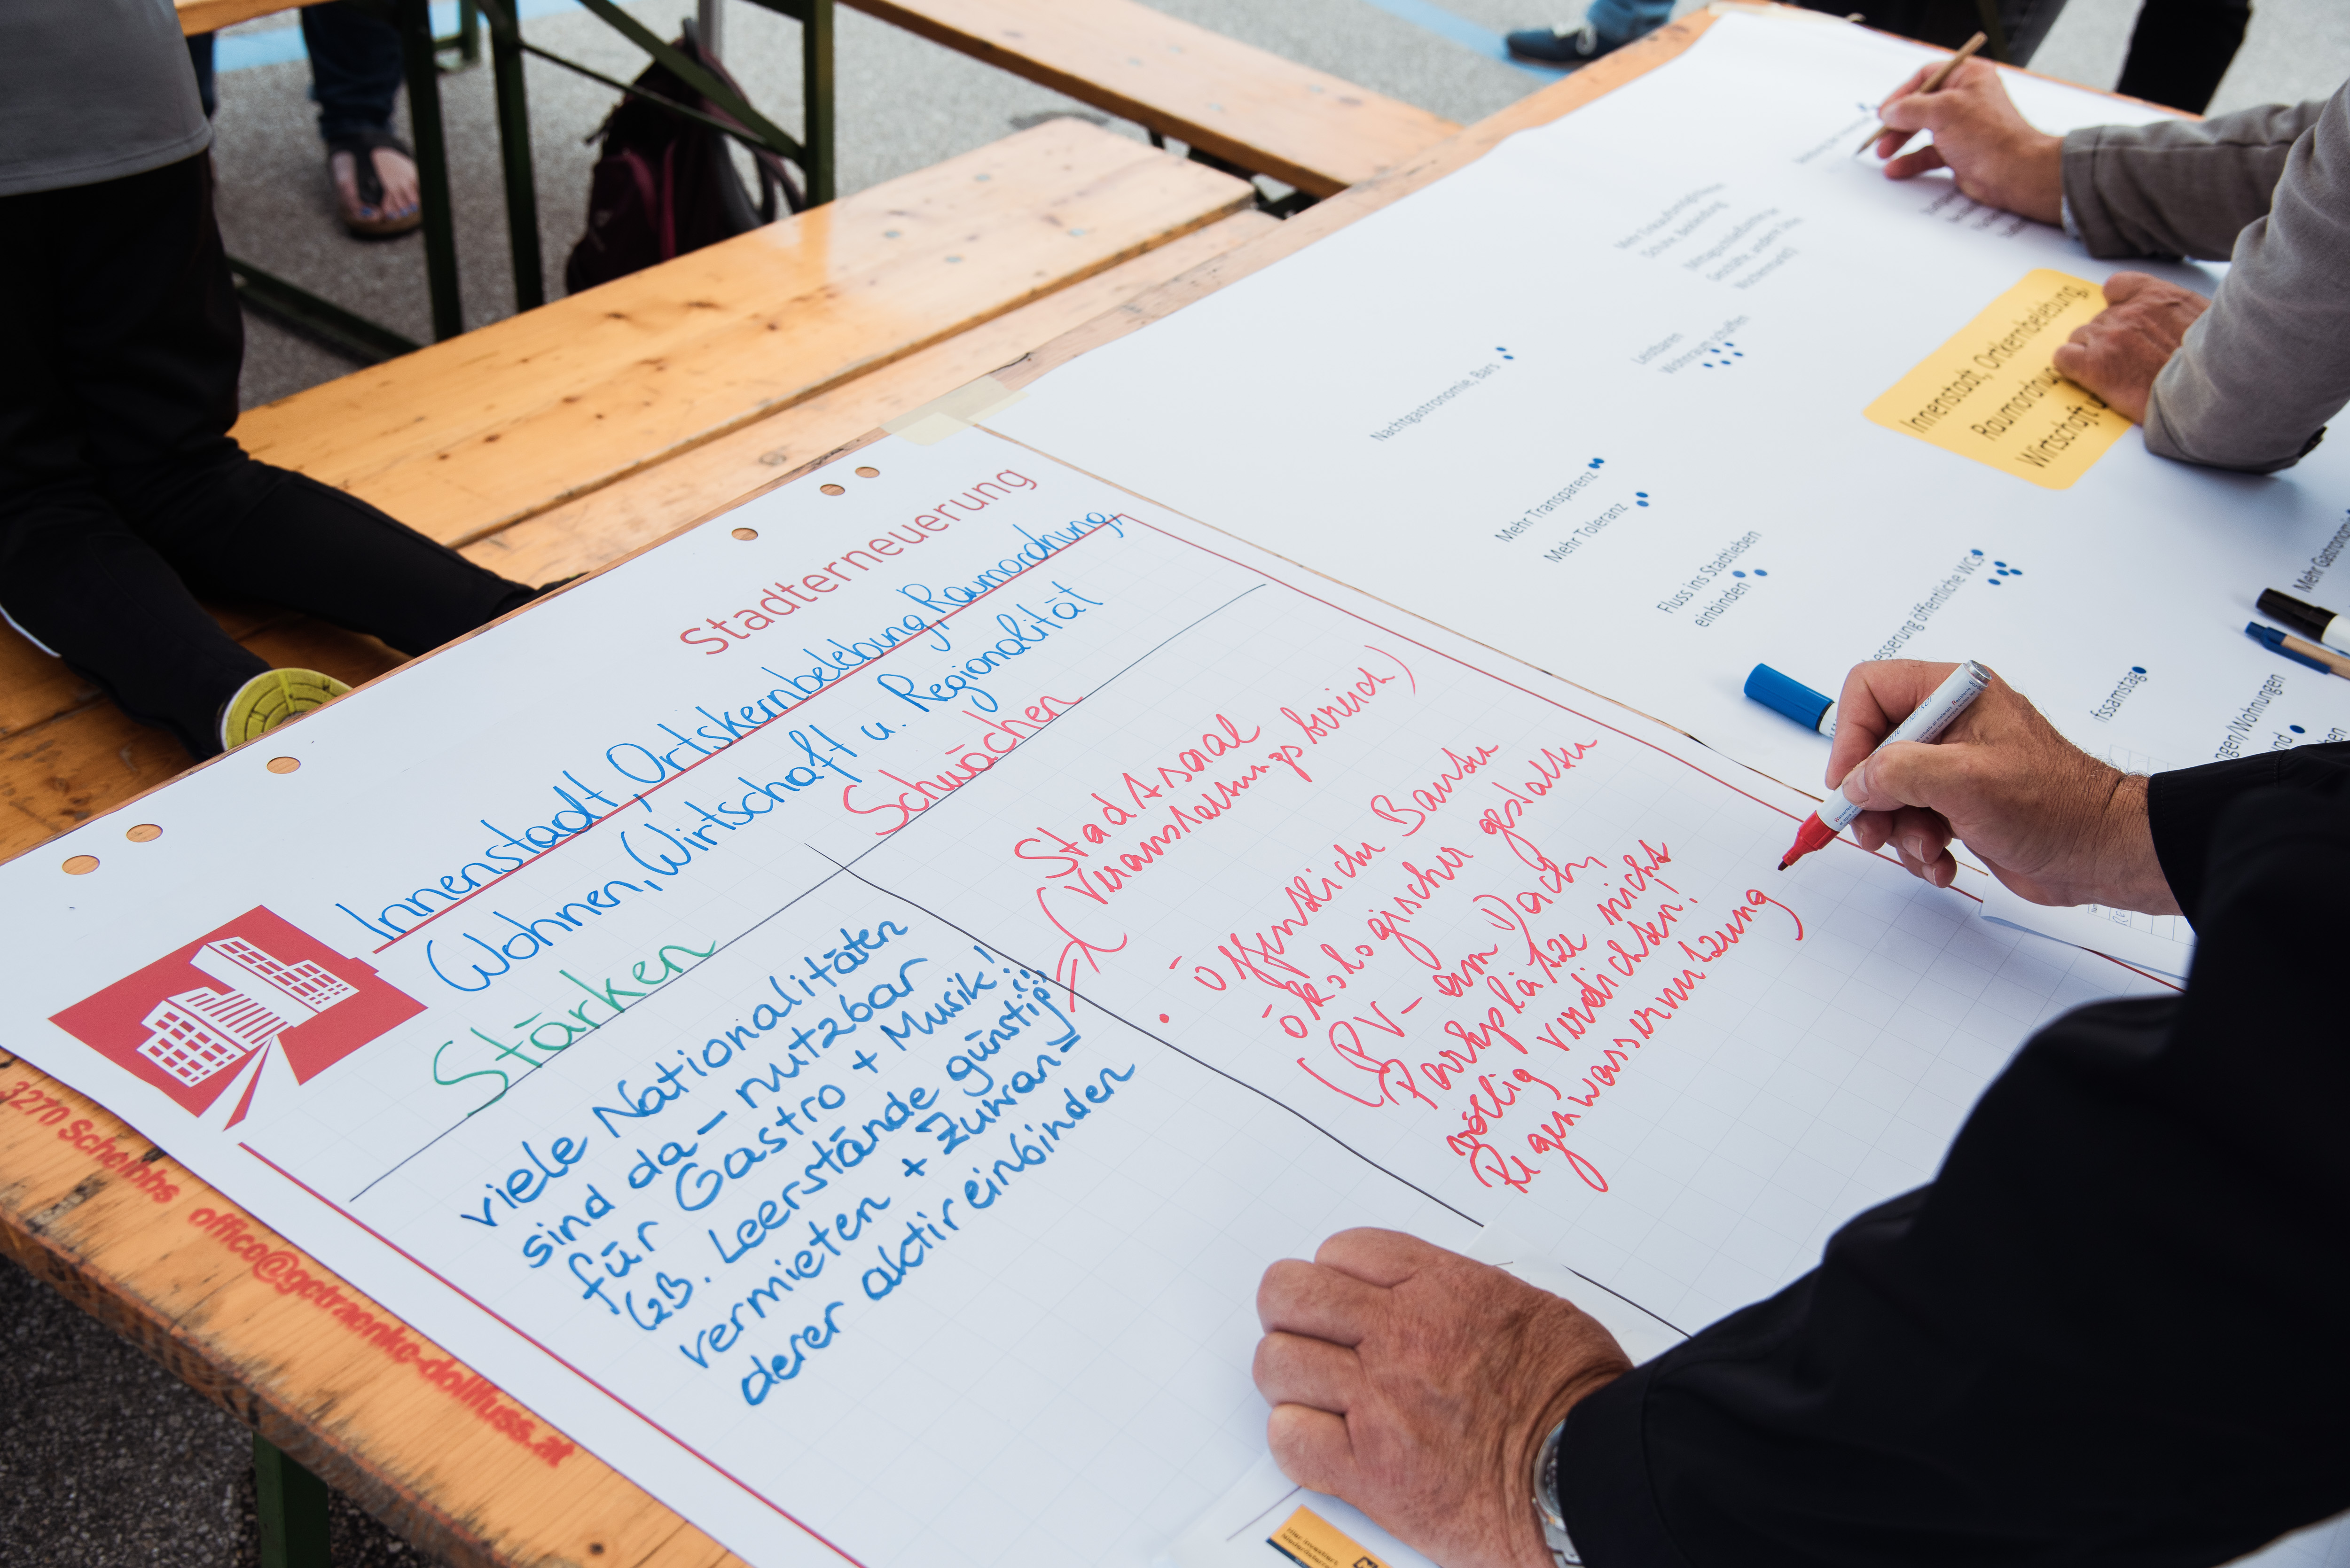 Stadterneuerung
Innenstadt, Ortskernbelebung, Raumordnung,
Wohnen, Wirtschaft u. Regionalität
Stärken
Schwächen
viele Nationalitäten
sind da – nutzbar
für Gastro + Musik!
(zB. Leerstände günstig
vermieten + Zuwan=
derer aktiv einbinden
Stadtsaal
(Veranstaltungsbereich)
• öffentliche Bauten
ökologischer gestalten
(PV- am Dach,
Parkplätze nicht
völlig verdichten!
Regenwassernutzung
3270 Scheibbs office@getraenke-dollfuss.at
Nachtgastronomie, Bars
Leistbaren
Wohnraum schaffen
Mehr Transparenz
Mehr Toleranz
Fluss ins Stadtleben
einbinden
esserung öffentliche WCs
fssamstag
ngen/Wohnungen
und
Mehr Gastronomi
Innenstadt, Ortkernbelebung,
Raumordnu
Wirtschaft u